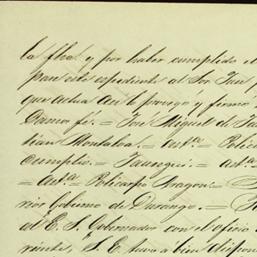 la fha. y por haber cumplido el
pase este espediente al Sor Juez
que actua así lo proveyó y firmó
Damos fé. = José Miguel de
tian Montalvo. = asta. = Polica
cumplió. = Jauregui. = asta.
= Asta. = Policarpo Aragon. =
rior Gobierno de Durango. =
al E. S. Gobernador con el oficio
riente, S. E. tuvo á bien dispon